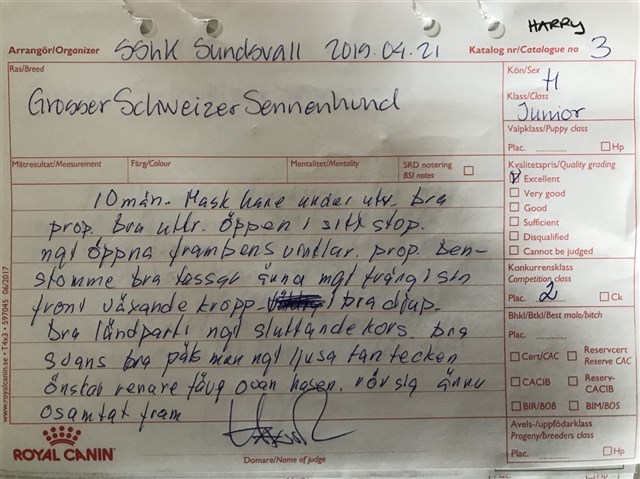 HARRY
Arrangör/Organizer SShK Sundsvall 2019.04.21 Katalog nr/Catalogue no 3
Ras/Breed
Grosser Schweizer Sennenhund
Kön/Sex H
Klass/Class
Junior
Valpklass/Puppy class
Plac. ............ Hp
Mätresultat/Measurement Färg/Colour Mentalitet/Mentality SRD notering
BSI notes
Kvalitetspris/Quality grading
Excellent
Very good
Good
Sufficient
Disqualified
Cannot be judged
Konkurrensklass
Competition class
Plac. 2 Ck
Bhkl/Btkl/Best male/bitch
Cert/CAC Reservcert
Reserve CAC
CACIB Reserv-
CACIB
BIR/BOB BIM/BOS
Avels-/uppfödarklass
Progeny/breeders class
Plac. ............ Hp
10 mån. Mask hane under utv. bra
prop. bra uttr. öppen i sitt stop.
ngt öppna frambens vinklar. prop. ben-
stomme bra tassar ännu ngt trång i sin
front växande kropp i bra djup.
bra ländparti ngt sluttande kors. bra
svans bra päls men ngt ljusa tan tecken
önskar renare färg ovan hasen. rör sig ännu
osamtat fram
www.royalcanin.se • T4x3 • 597045 06/2017
ROYAL CANIN
Domare/Name of judge